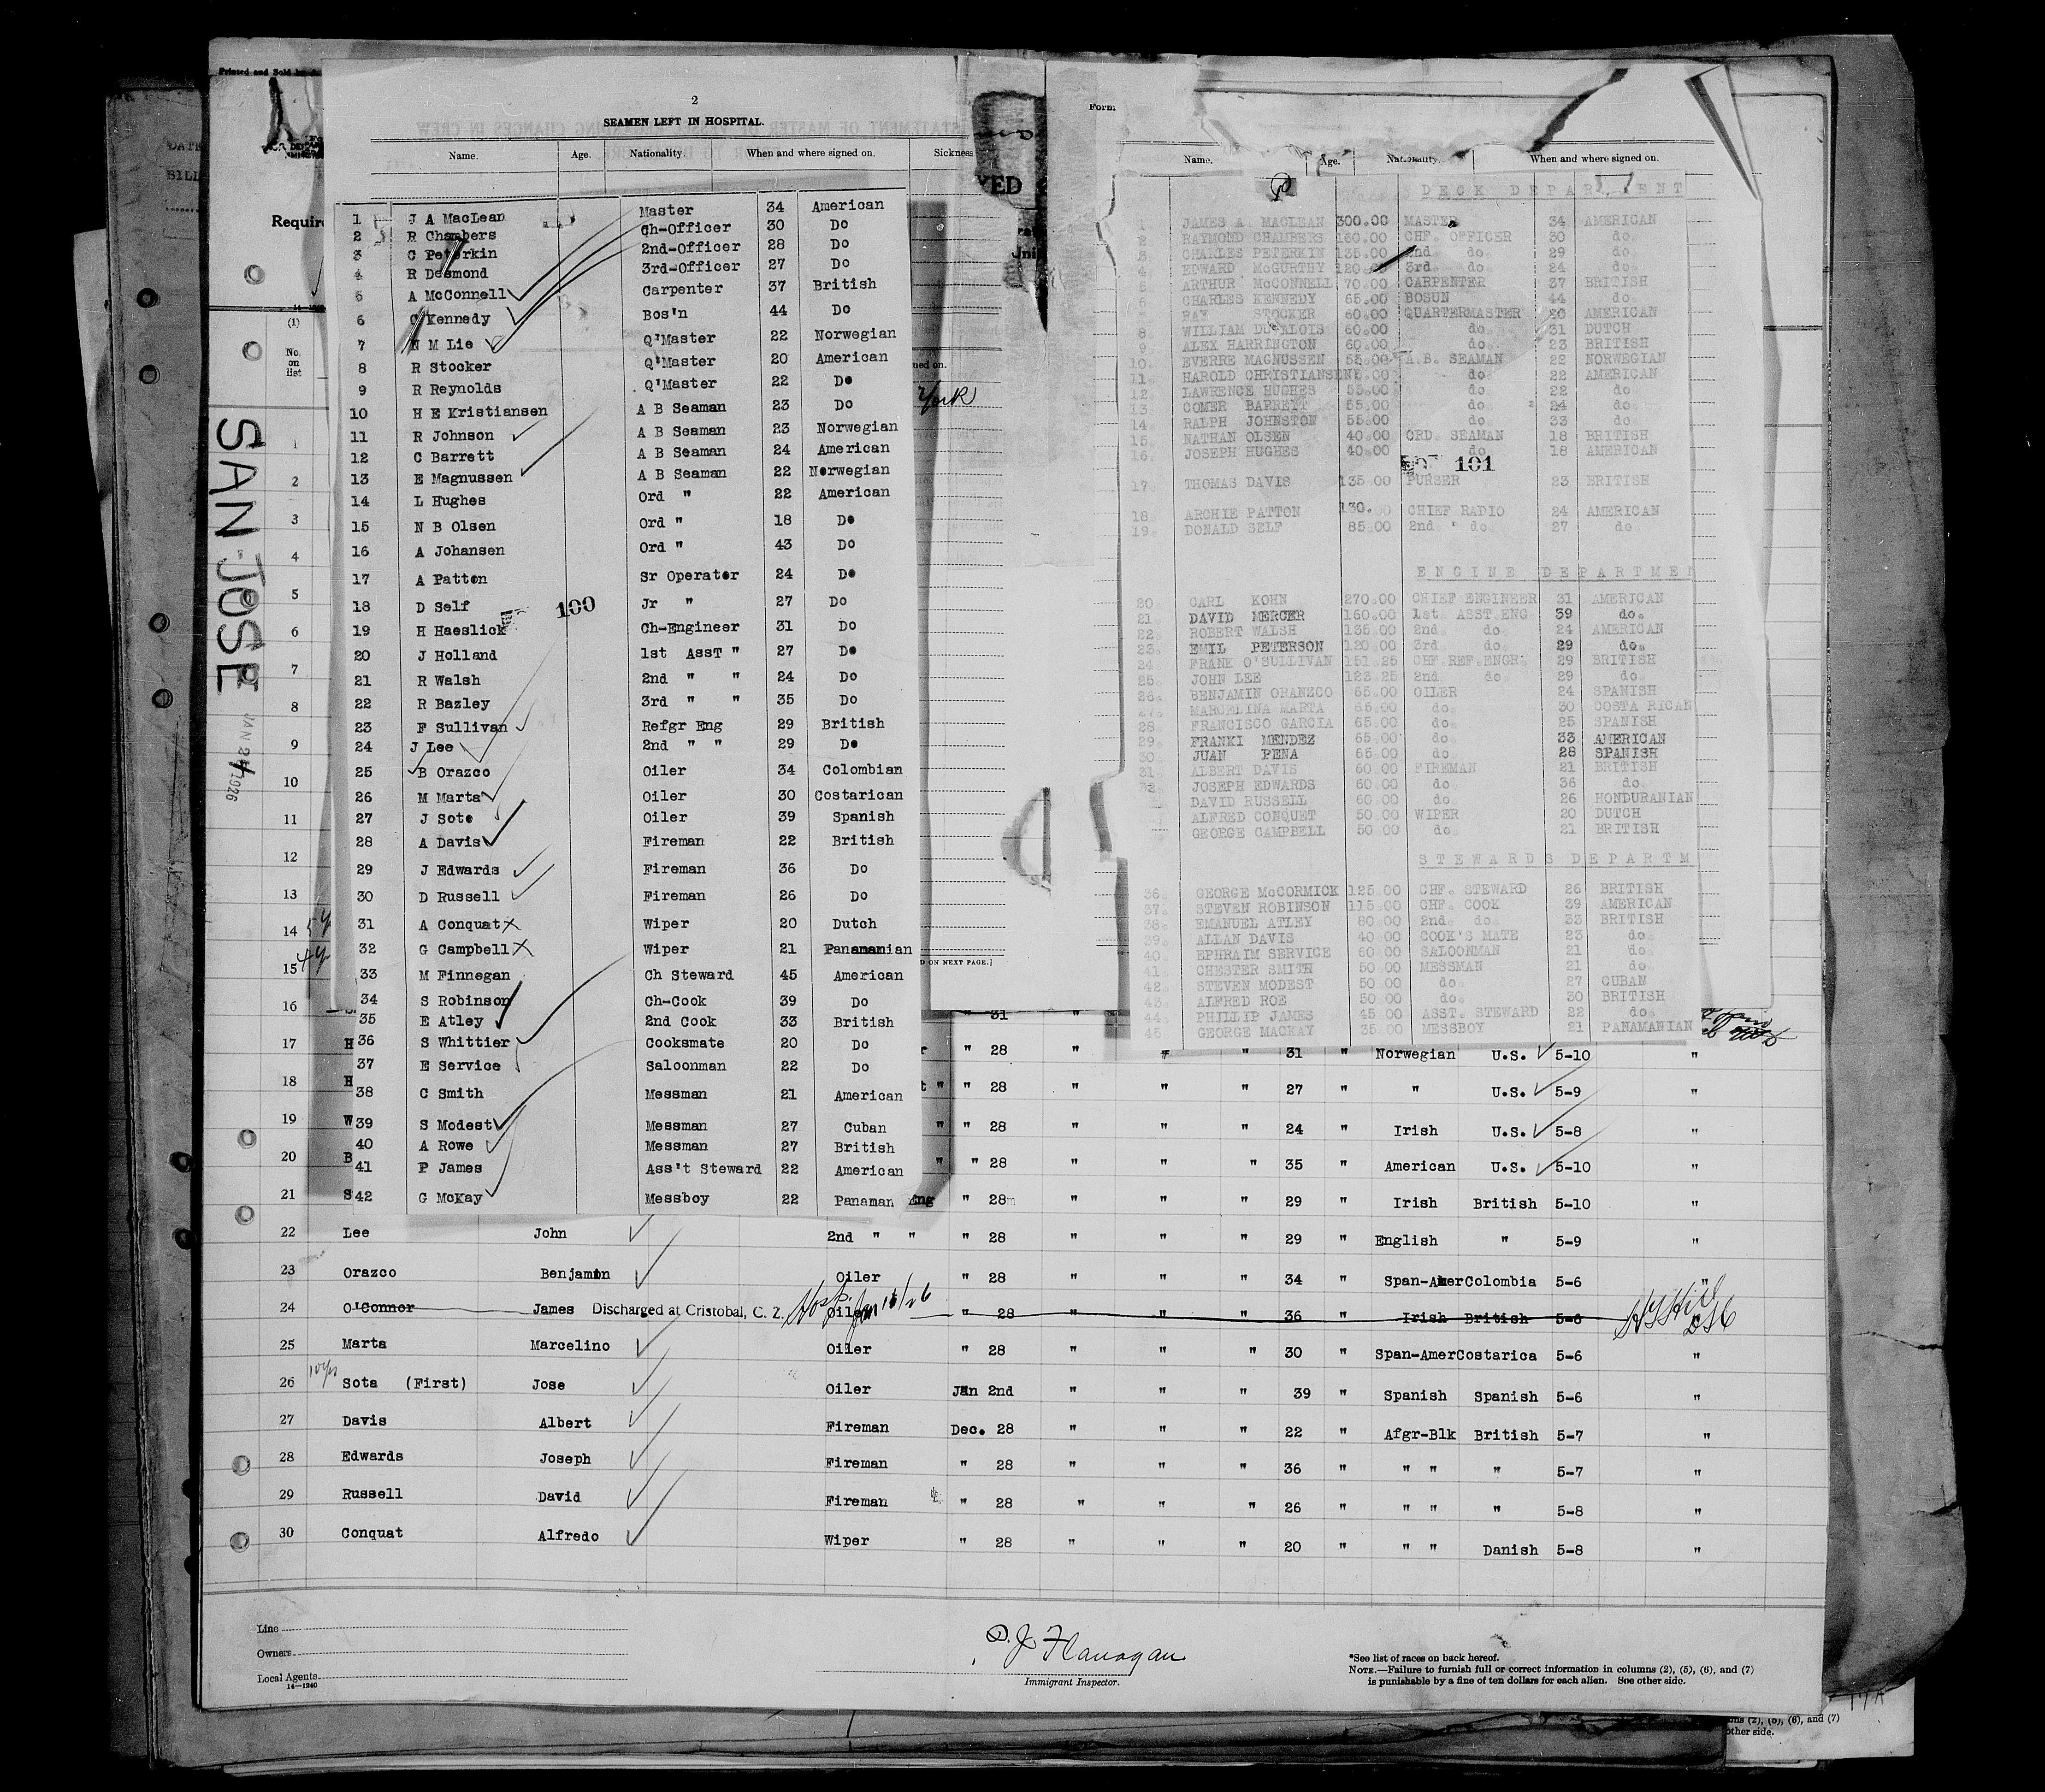 Printed and Sold by
2
SEAMEN LEFT IN HOSPITAL.
Name. Age. Nationality. When and where signed on. Sickness
Require
(1)
No. on list
SAN JOSE
JAN 24 1926
1 J A MacLean Master 34 American
2 R Chambers Ch-Officer 30 Do
3 C Peterkin 2nd-Officer 28 Do
4 R Desmond 3rd-Officer 27 Do
5 A McConnell Carpenter 37 British
6 C Kennedy Bos'n 44 Do
7 N M Lie Q'Master 22 Norwegian
8 R Stocker Q'Master 20 American
9 R Reynolds Q'Master 22 Do
10 H E Kristiansen A B Seaman 23 Do
11 R Johnson A B Seaman 23 Norwegian
12 C Barrett A B Seaman 24 American
13 E Magnussen A B Seaman 22 Norwegian
14 L Hughes Ord " 22 American
15 N B Olsen Ord " 18 Do
16 A Johansen Ord " 43 Do
17 A Patton Sr Operator 24 Do
18 D Self Jr " 27 Do
100
19 H Haeslick Ch-Engineer 31 Do
20 J Holland 1st AssT " 27 Do
21 R Walsh 2nd " " 24 Do
22 R Bazley 3rd " " 35 Do
23 F Sullivan Refgr Eng 29 British
24 J Lee 2nd " " 29 Do
25 B Orazco Oiler 34 Colombian
26 M Marta Oiler 30 Costarican
27 J Soto Oiler 39 Spanish
28 A Davis Fireman 22 British
29 J Edwards Fireman 36 Do
30 D Russell Fireman 26 Do
31 A Conquat Wiper 20 Dutch
32 G Campbell Wiper 21 Panamanian
33 M Finnegan Ch Steward 45 American
34 S Robinson Ch-Cook 39 Do
35 E Atley 2nd Cook 33 British
36 S Whittier Cooksmate 20 Do
37 E Service Saloonman 22 Do
38 C Smith Messman 21 American
39 S Modest Messman 27 Cuban
40 A Rowe Messman 27 British
41 P James Ass't Steward 22 American
42 G McKay Messboy 22 Panaman
York
D ON NEXT PAGE.]
Form
Name. Age. Nationality. When and where signed on.
DECK DEPARTMENT
1 JAMES A. MACLEAN 300.00 MASTER 34 AMERICAN
2 RAYMOND CHAMBERS 160.00 CHF. OFFICER 30 do.
3 CHARLES PETERKIN 135.00 2nd do 29 do.
4 EDWARD McGURTHY 120.00 3rd do 24 do.
5 ARTHUR McCONNELL 70.00 CARPENTER 37 BRITISH
6 CHARLES KENNEDY 65.00 BOSUN 44 do.
RAY STOCKER 60.00 QUARTERMASTER 20 AMERICAN
8 WILLIAM DUVALOIS 60.00 do 31 DUTCH
9 ALEX HARRINGTON 60.00 do. 23 BRITISH
10. EVERRE MAGNUSSEN 55.00 A.B. SEAMAN 22 NORWEGIAN
11. HAROLD CHRISTIANSEN 55.00 do 22 AMERICAN
12. LAWRENCE HUGHES 55.00 do 22 do.
13. COMER BARRETT 55.00 do 24 do.
14. RALPH JOHNSTON 55.00 do. 33 do.
15. NATHAN OLSEN 40.00 ORD. SEAMAN 18 BRITISH
16. JOSEPH HUGHES 40.00 do 18 AMERICAN
101
17. THOMAS DAVIS 135.00 PURSER 23 BRITISH
18. ARCHIE PATTON 130. CHIEF RADIO 24 AMERICAN
19. DONALD SELF 85.00 2nd " do 27 do.
ENGINE DEPARTMEN
20. CARL KOHN 270.00 CHIEF ENGINEER 31 AMERICAN
21. DAVID MERCER 160.00 1st. ASST.ENG. 39 do.
22. ROBERT WALSH 135.00 2nd. do. 24 AMERICAN
23. EMIL PETERSON 120.00 3rd. do. 29 do.
24. FRANK O'SULLIVAN 151.25 CHF.REF.ENGR. 29 BRITISH
25. JOHN LEE 123.25 2nd. do. 29 do.
26. BENJAMIN ORANZCO 65.00 OILER 24 SPANISH
27. MARCELINA MARTA 65.00 do. 30 COSTA RICAN
28. FRANCISCO GARCIA 65.00 do. 25 SPANISH
29. FRANKI MENDEZ 65.00 do. 33 AMERICAN
30. JUAN PENA 65.00 do. 28 SPANISH
31. ALBERT DAVIS 60.00 FIREMAN 21 BRITISH
32. JOSEPH EDWARDS 60.00 do. 36 do.
DAVID RUSSELL 60.00 do. 26 HONDURANIAN
ALFRED CONQUET 50.00 WIPER 20 DUTCH
GEORGE CAMPBELL 50.00 do. 21 BRITISH
STEWARDS DEPARTM
36. GEORGE McCORMICK 125.00 CHF. STEWARD 26 BRITISH
37. STEVEN ROBINSON 115.00 CHF. COOK 39 AMERICAN
38. EMANUEL ATLEY 80.00 2nd. do. 33 BRITISH
39. ALLAN DAVIS 40.00 COOK'S MATE 23 do.
40. EPHRAIM SERVICE 60.00 SALOONMAN 21 do.
41. CHESTER SMITH 50.00 MESSMAN 21 do.
42. STEVEN MODEST 50.00 do. 27 CUBAN
43. ALFRED ROE 50.00 do. 30 BRITISH
44. PHILLIP JAMES 45.00 ASST. STEWARD 22 do.
45. GEORGE MACKAY 35.00 MESSBOY 21 PANAMANIAN
1
2
3
4
5
6
7
8
9
10
11
12
13
14
15
16 " 31 "
17 H " 28 " " " 31 " Norwegian U.S. 5-10 "
18 H " " 28 " " " 27 " " U.S. 5-9 "
19 W " " 28 " " " 24 " Irish U.S. 5-8 "
20 B " " 28 " " " 35 " American U.S. 5-10 "
21 S Eng " 28 " " " 29 " Irish British 5-10 "
22 Lee John 2nd " " " 28 " " " 29 " English " 5-9 "
23 Orazco Benjamin Oiler " 28 " " " 34 " Span-Amer Colombia 5-6
24 O'Connor James Discharged at Cristobal, C. Z. Hosp. Jan 15/26 Oiler " 28 " " " 36 " Irish British 5-6
25 Marta Marcelino Oiler " 28 " " " 30 " Span-Amer Costarica 5-6 "
26 10 yrs Sota (First) Jose Oiler Jan 2nd " " " 39 " Spanish Spanish 5-6 "
27 Davis Albert Fireman Dec. 28 " " " 22 " Afgr-Blk British 5-7 "
28 Edwards Joseph Fireman " 28 " " " 36 " " " " 5-7 "
29 Russell David Fireman " 28 " " " 26 " " " " 5-8 "
30 Conquat Alfredo Wiper " 28 " " " 20 " " " Danish 5-8 "
Line
Owners
Local Agents
14-1240
D. J. Flanagan
Immigrant Inspector.
*See list of races on back hereof.
NOTE.—Failure to furnish full or correct information in columns (2), (5), (6), and (7)
is punishable by a fine of ten dollars for each alien. See other side.
ns (2), (5), (6), and (7)
other side.